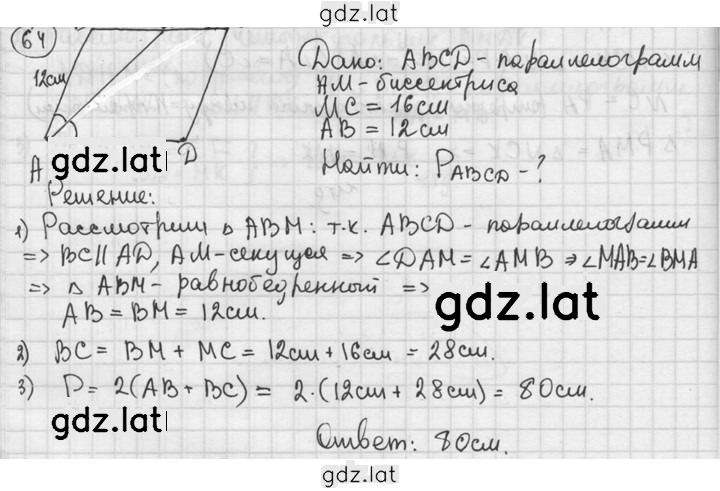 gdz.lat
64
12см
A
D
gdz.lat
Дано: ABCD - параллелограмм
AM - биссектриса
MC = 16 см
AB = 12 см
Найти: P ABCD - ?
Решение:
1) Рассмотрим △ ABM: т.к. ABCD - параллелограмм
=> BC || AD, AM - секущая => ∠DAM = ∠AMB => ∠MAB = ∠BMA
=> △ ABM - равнобедренный =>
AB = BM = 12 см.
gdz.lat
2) BC = BM + MC = 12 см + 16 см = 28 см.
3) P = 2(AB + BC) = 2·(12 см + 28 см) = 80 см.
gdz.lat
Ответ: 80 см.
gdz.lat